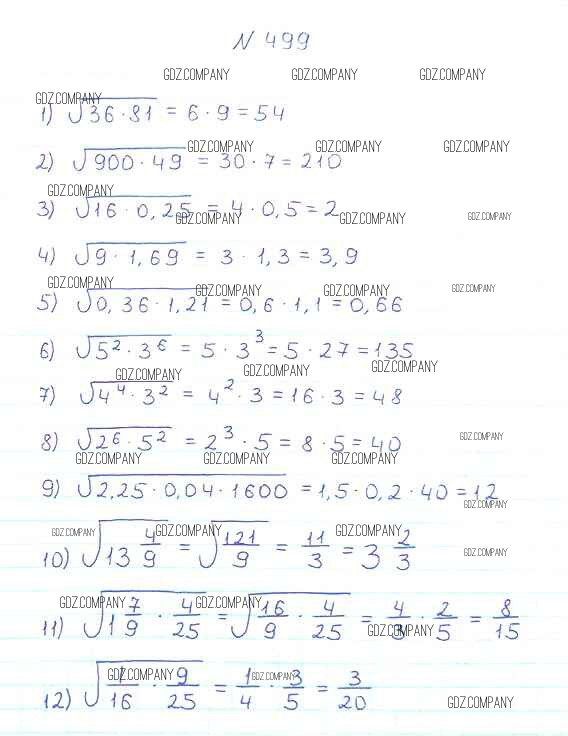 N 499
GDZ.COMPANY GDZ.COMPANY GDZ.COMPANY
GDZ.COMPANY
1) √36·81 = 6·9 = 54
GDZ.COMPANY GDZ.COMPANY GDZ.COMPANY
2) √900·49 = 30·7 = 210
GDZ.COMPANY
3) √16·0,25 = 4·0,5 = 2
GDZ.COMPANY GDZ.COMPANY GDZ.COMPANY
4) √9·1,69 = 3·1,3 = 3,9
GDZ.COMPANY GDZ.COMPANY GDZ.COMPANY GDZ.COMPANY
5) √0,36·1,21 = 0,6·1,1 = 0,66
6) √5²·3⁶ = 5·3³ = 5·27 = 135
GDZ.COMPANY GDZ.COMPANY GDZ.COMPANY
7) √4⁴·3² = 4²·3 = 16·3 = 48
8) √2⁶·5² = 2³·5 = 8·5 = 40
GDZ.COMPANY
GDZ.COMPANY GDZ.COMPANY GDZ.COMPANY
9) √2,25·0,04·1600 = 1,5·0,2·40 = 12
GDZ.COMPANY
GDZ.COMPANY GDZ.COMPANY GDZ.COMPANY
10) √13 4/9 = √121/9 = 11/3 = 3 2/3
GDZ.COMPANY
GDZ.COMPANY GDZ.COMPANY
11) √1 7/9 · 4/25 = √16/9 · 4/25 = 4/3 · 2/5 = 8/15
GDZ.COMPANY
GDZ.COMPANY GDZ.COMPANY
12) √1/16 · 9/25 = 1/4 · 3/5 = 3/20
GDZ.COMPANY